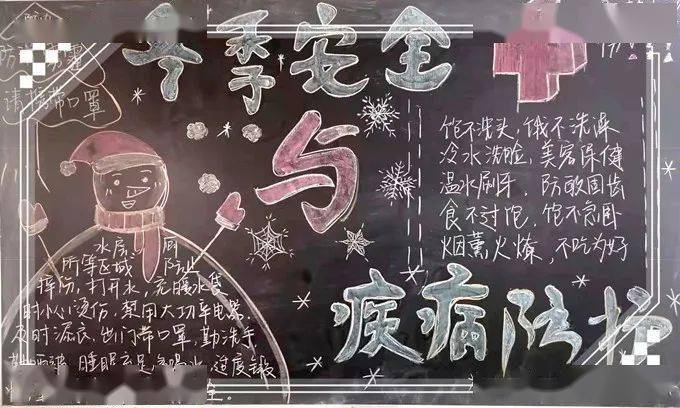 冬季安全
与
疾病防护
请携带口罩
饱不洗头，饿不洗澡
冷水洗脸，美容保健
温水刷牙，防敌固齿
食不过饱，饱不急卧
烟薰火燎，不吃为好
水房 厕
所等区域 防止
摔伤，打开水，充暖水袋
时小心烫伤，禁用大功率电器，
及时添衣，出门带口罩，勤洗手
睡眠充足，多喝水，适度锻